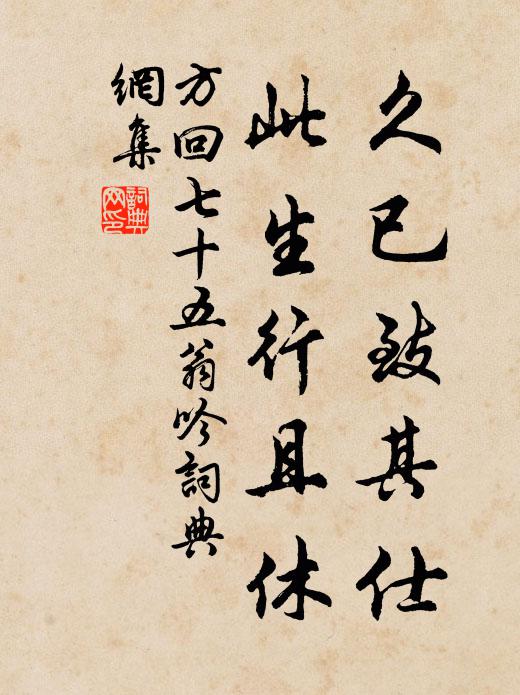 久已致其仕
此生行且休
方回七十五翁吟詞典
網集
詞典
网印